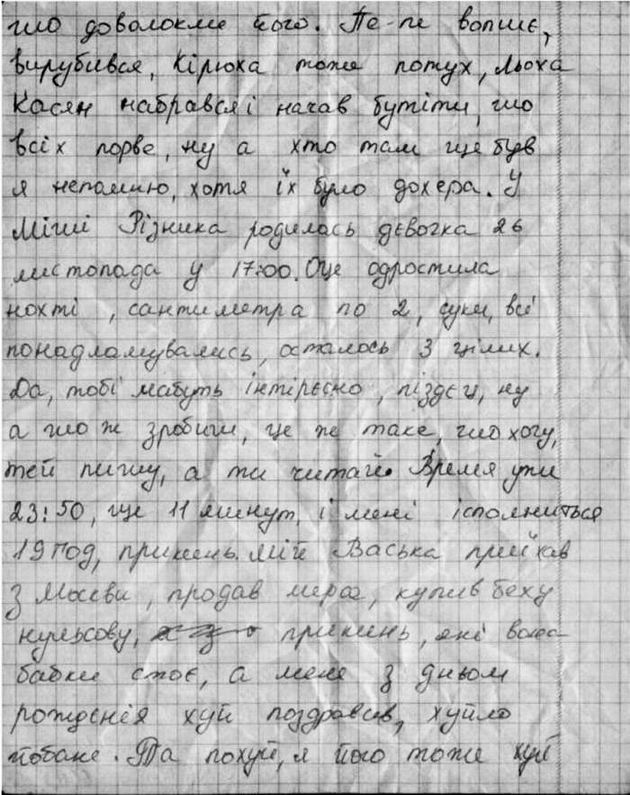 шо доволокли його. Пе-пе вопше,
вирубився, Кірюха тоже потух, Льоха
Касян набрався і начав бутіти, шо
всіх порве, ну а хто там ще був
я непомню, хотя їх було дохера. У
Міші Різника родилась дєвочка 26
листопада у 17:00. Оце одростила
нохті, сантиметра по 2, суки, всі
понадламувались, осталось 3 цілих.
Да, тобі мабуть інтірєсно, піздєц, ну
а шо ж зробиш, це же таке, шо хочу,
тей пишу, а ти читай. Врємя уже
23:50, ще 11 минут, і мені ісполниться
19 год, прикинь. Мій Васька приїхав
з Москви, продав мерс, купив беху
нульсову, прикинь, які вона
бабки стоє, а мене з дньом
рождєнія хуй поздравив, хуйло
йобане. Та похуй, я його тоже хуй